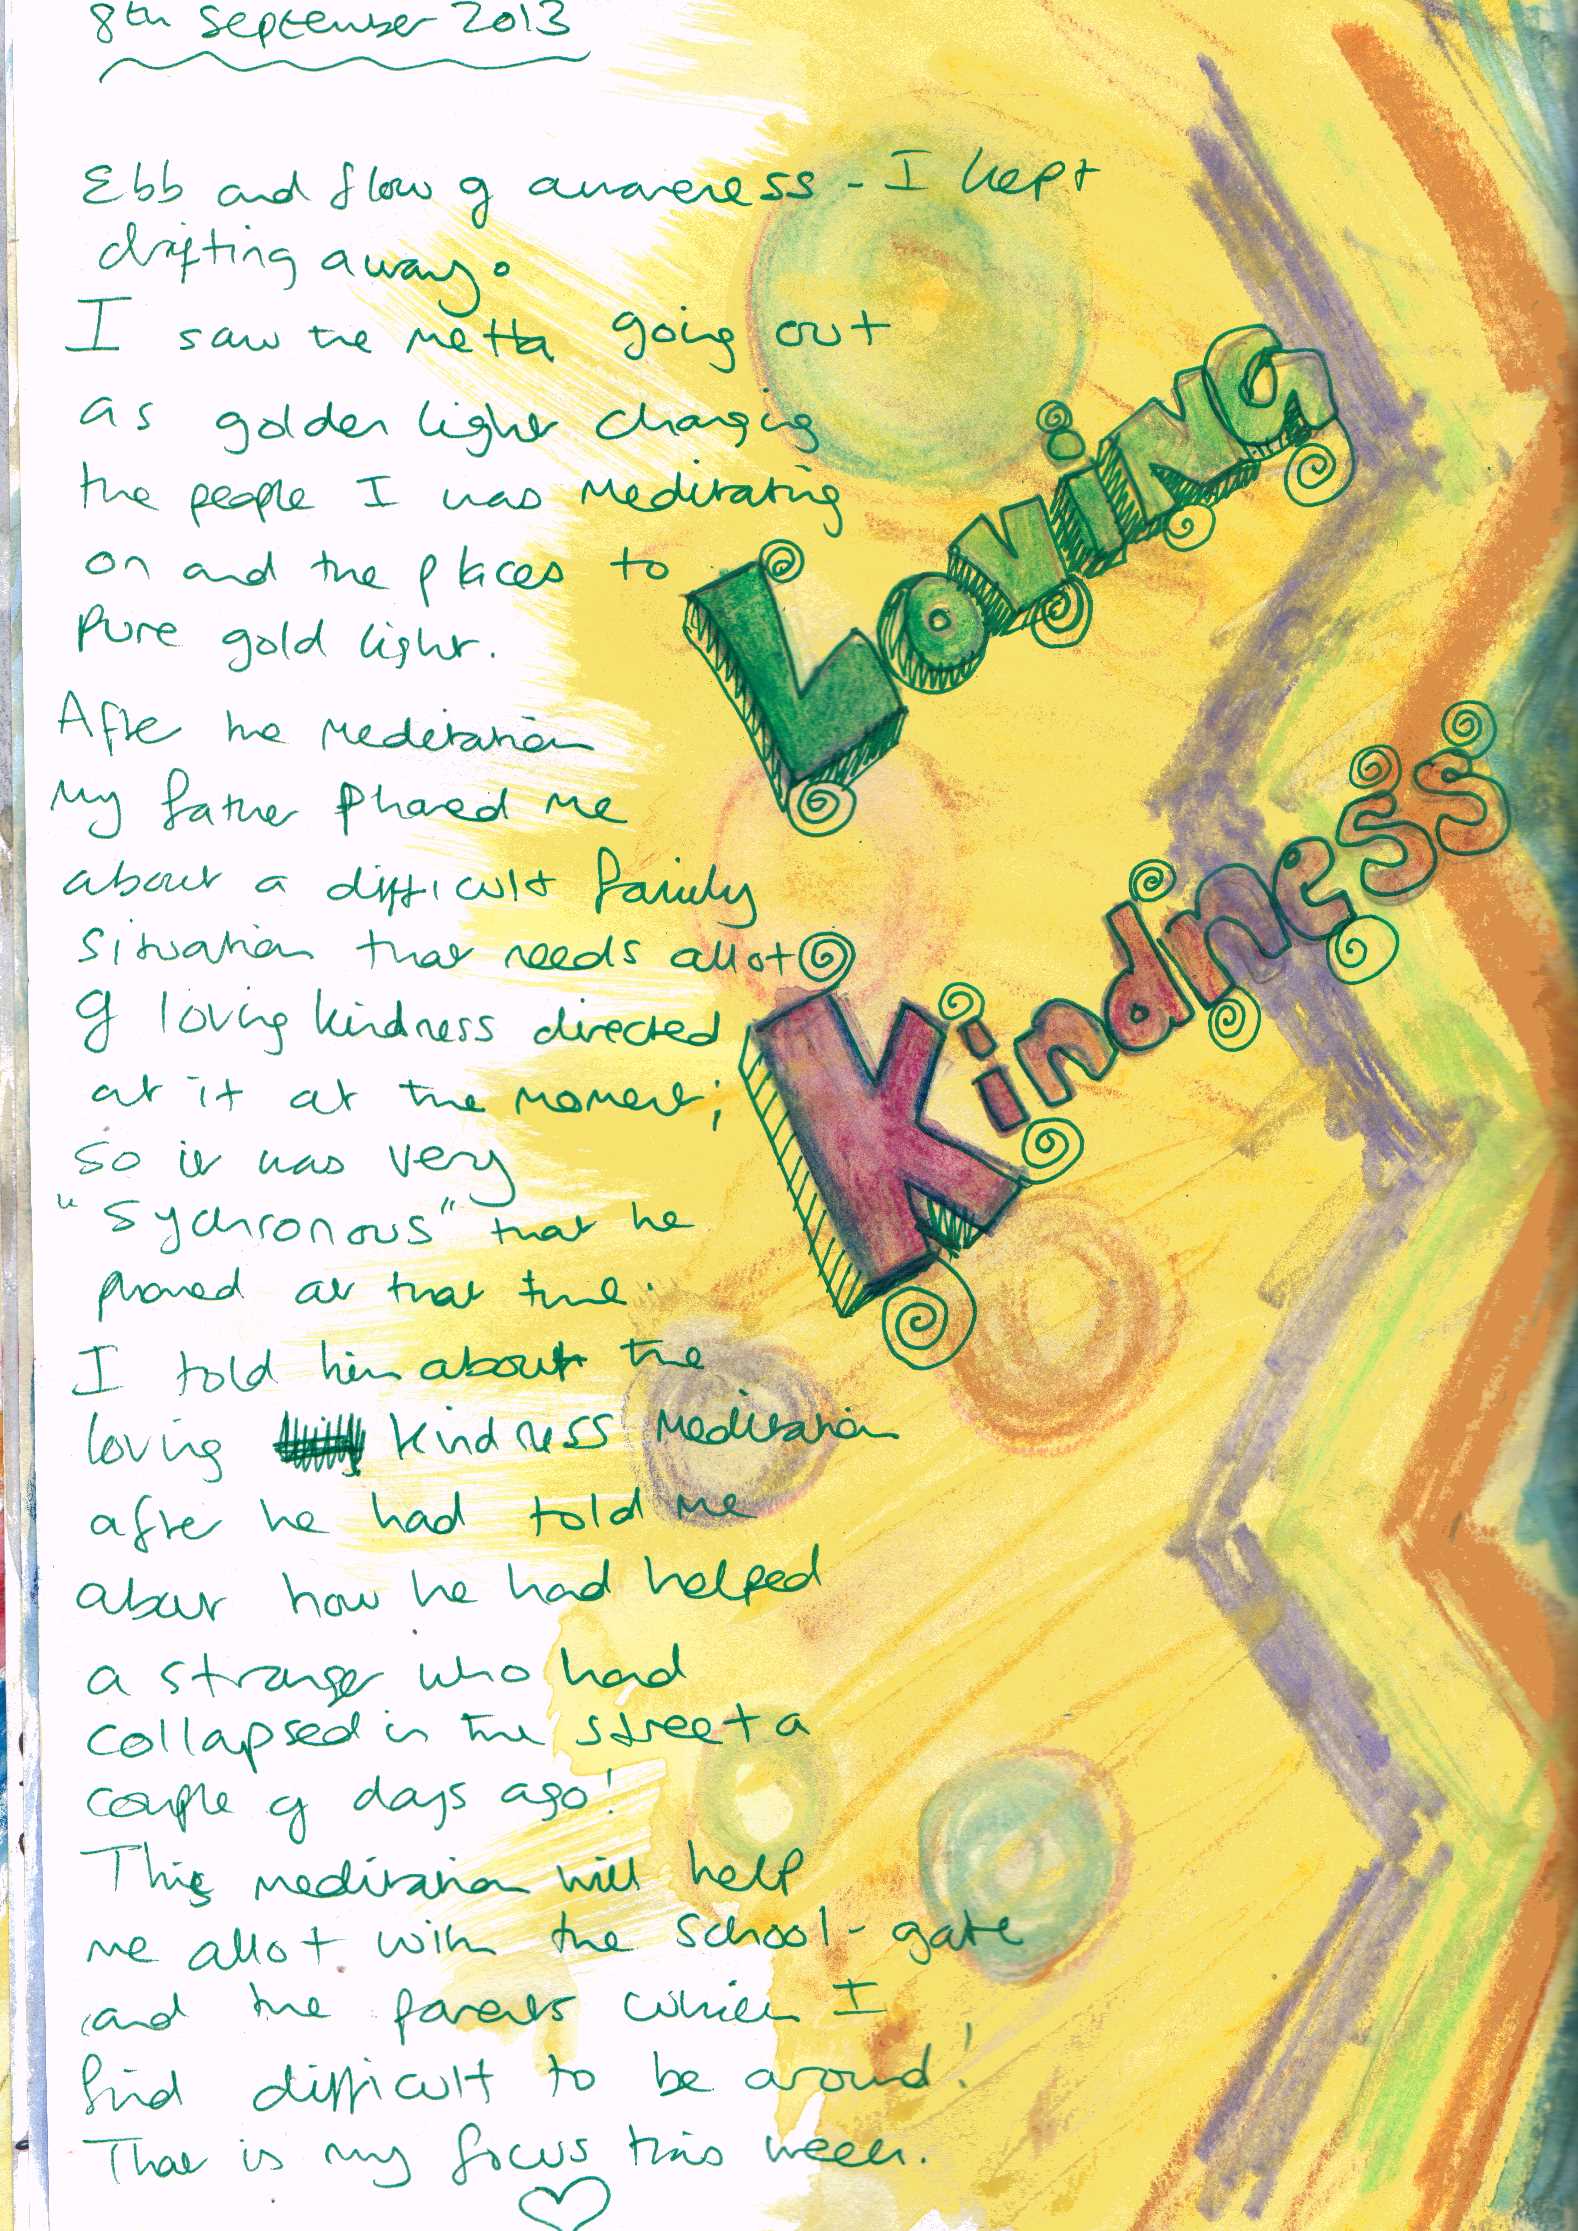 8th September 2013
Ebb and flow of awareness - I kept
drifting away.
I saw the metta going out
as golden light changing
the people I was meditating
on and the places to
pure gold light.
After the meditation
my father phoned me
about a difficult family
situation that needs allot
of loving kindness directed
at it at the moment;
so it was very
"sychronous" that he
phoned at that time.
I told him about the
loving kindness meditation
after he had told me
about how he had helped
a stranger who had
collapsed in the street a
couple of days ago!
This meditation will help
me allot with the school-gate
and the parents which I
find difficult to be around!
That is my focus this week.
LOVING
Kindness